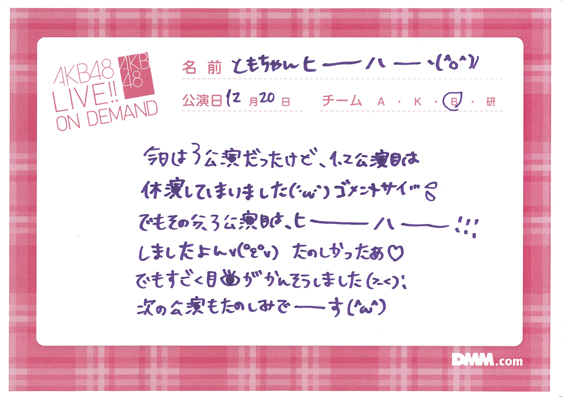 AKB48
LIVE!!
ON DEMAND
AKB
48
名前 ともちゃんヒーーハーー、(^o^)//
公演日 12月20日 チーム A・K・B・研
今日は3公演だったけど、1、2公演目は
休演してしまいました(・ω・)ゴメントサイ
でもその分、3公演目は、ヒーーーハーーー!!!
しましたよんv(°ε°v) たのしかったぁ♡
でもすごく目がかんそうしました(>.<);
次の公演もたのしみでーーす(^ω^)
DMM.com